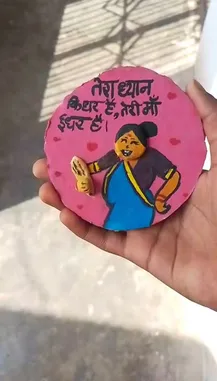 तेरा ध्यान
किधर है, तेरी माँ
ईधर है।